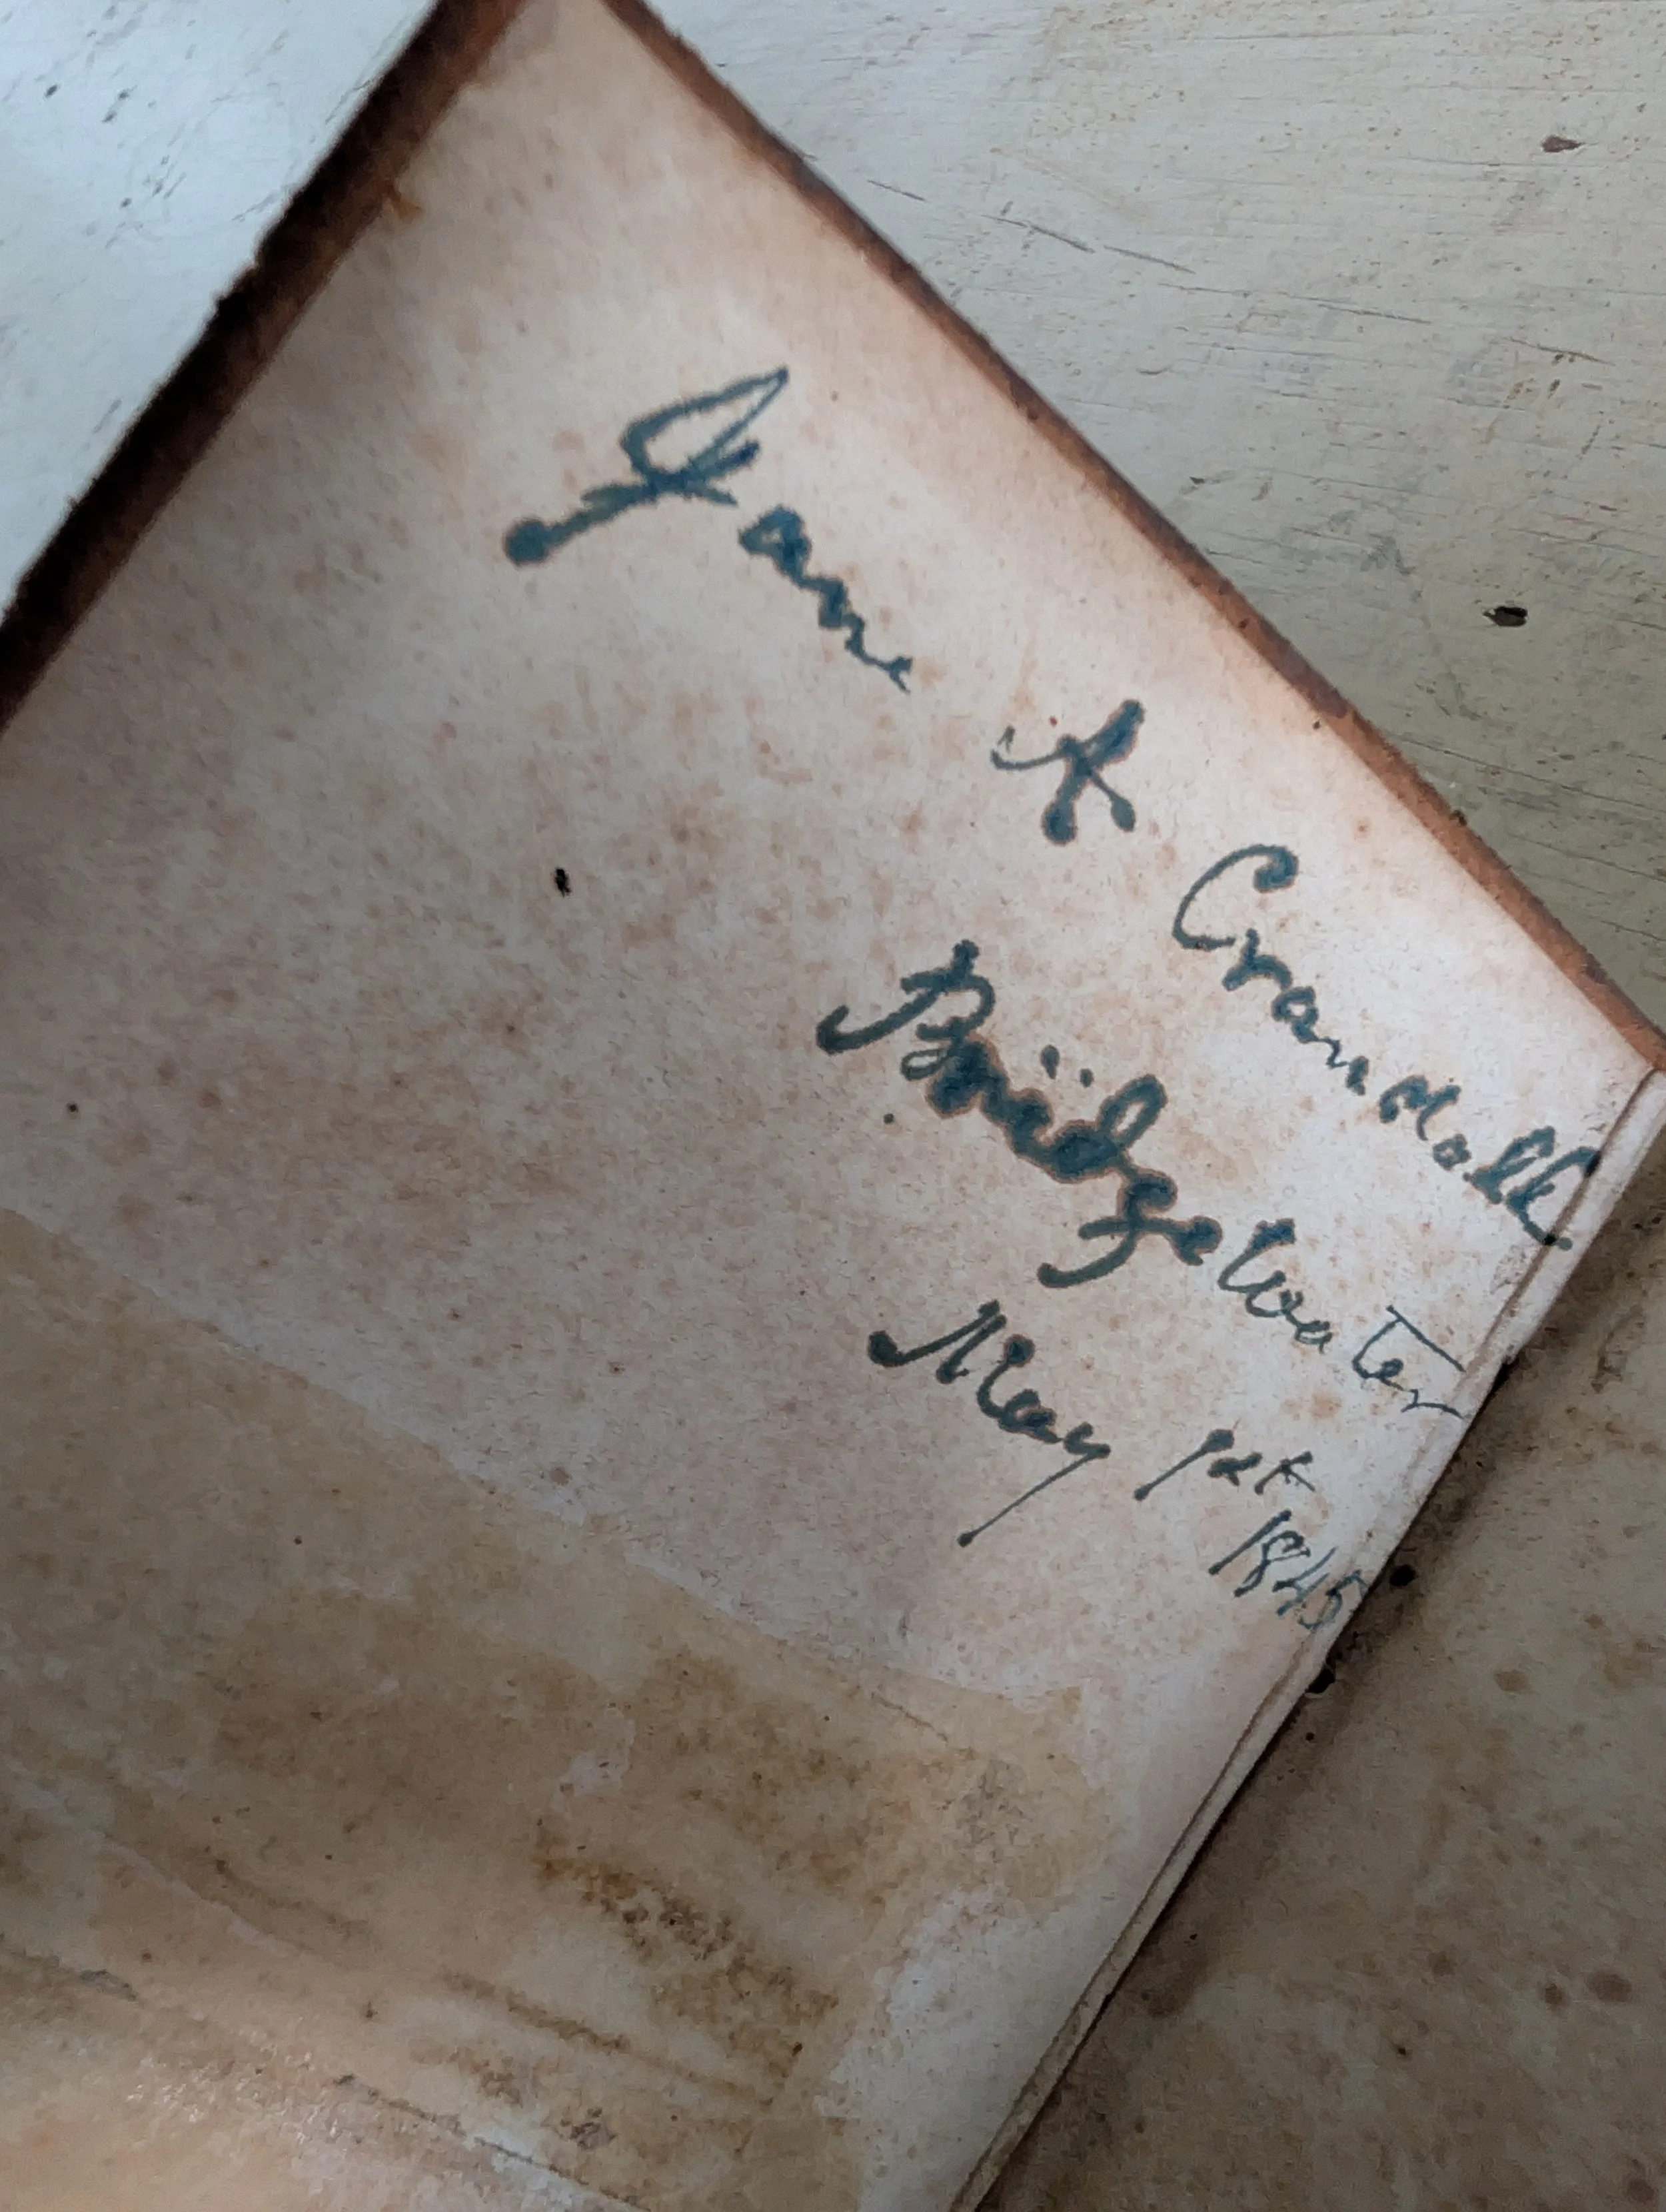 Jane A Crandall
Bridgewater
May 1st
1845